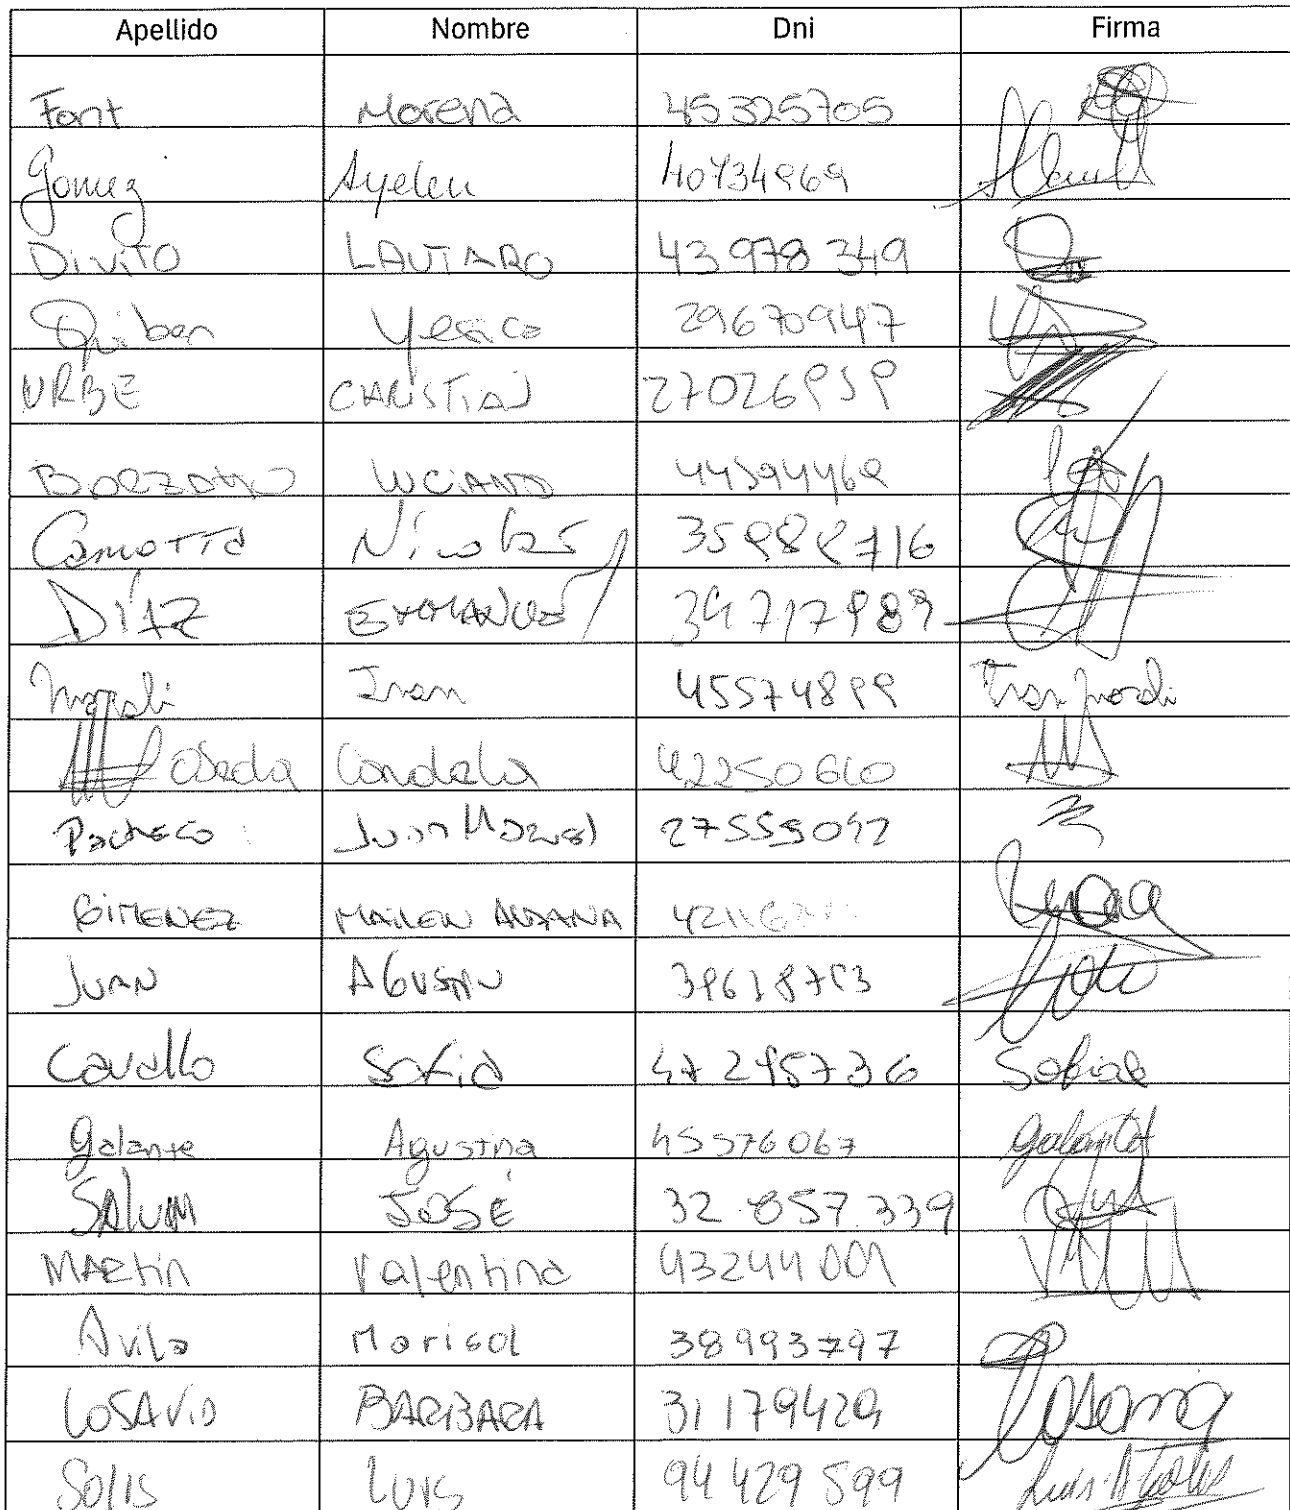 Apellido Nombre Dni Firma
Font Morena 45325705
Gomez Ayelen 40734969
DiviTO LAUTARO 43 978 349
Quiben Yesica 29670947
URBE CHRISTIAN 27026959
LUCIANO 44594469
Nicolas 35989716
DÍAZ 39717989
Ivan 45574899
Candela 42250660
Pacheco Juan Manuel 27555092
GIMENEZ MAILEN ALDANA
JUAN AGUSTIN
Cavallo Sofia 47295736 Sofia
Galante Agustina 45576067
SALUM JOSÉ 32.857.339
MARtin Valentina 43244001
Avila Marisol 38993797
LOSAVIO BARBARA 31179429
SOlIS LUIS 94 429 599